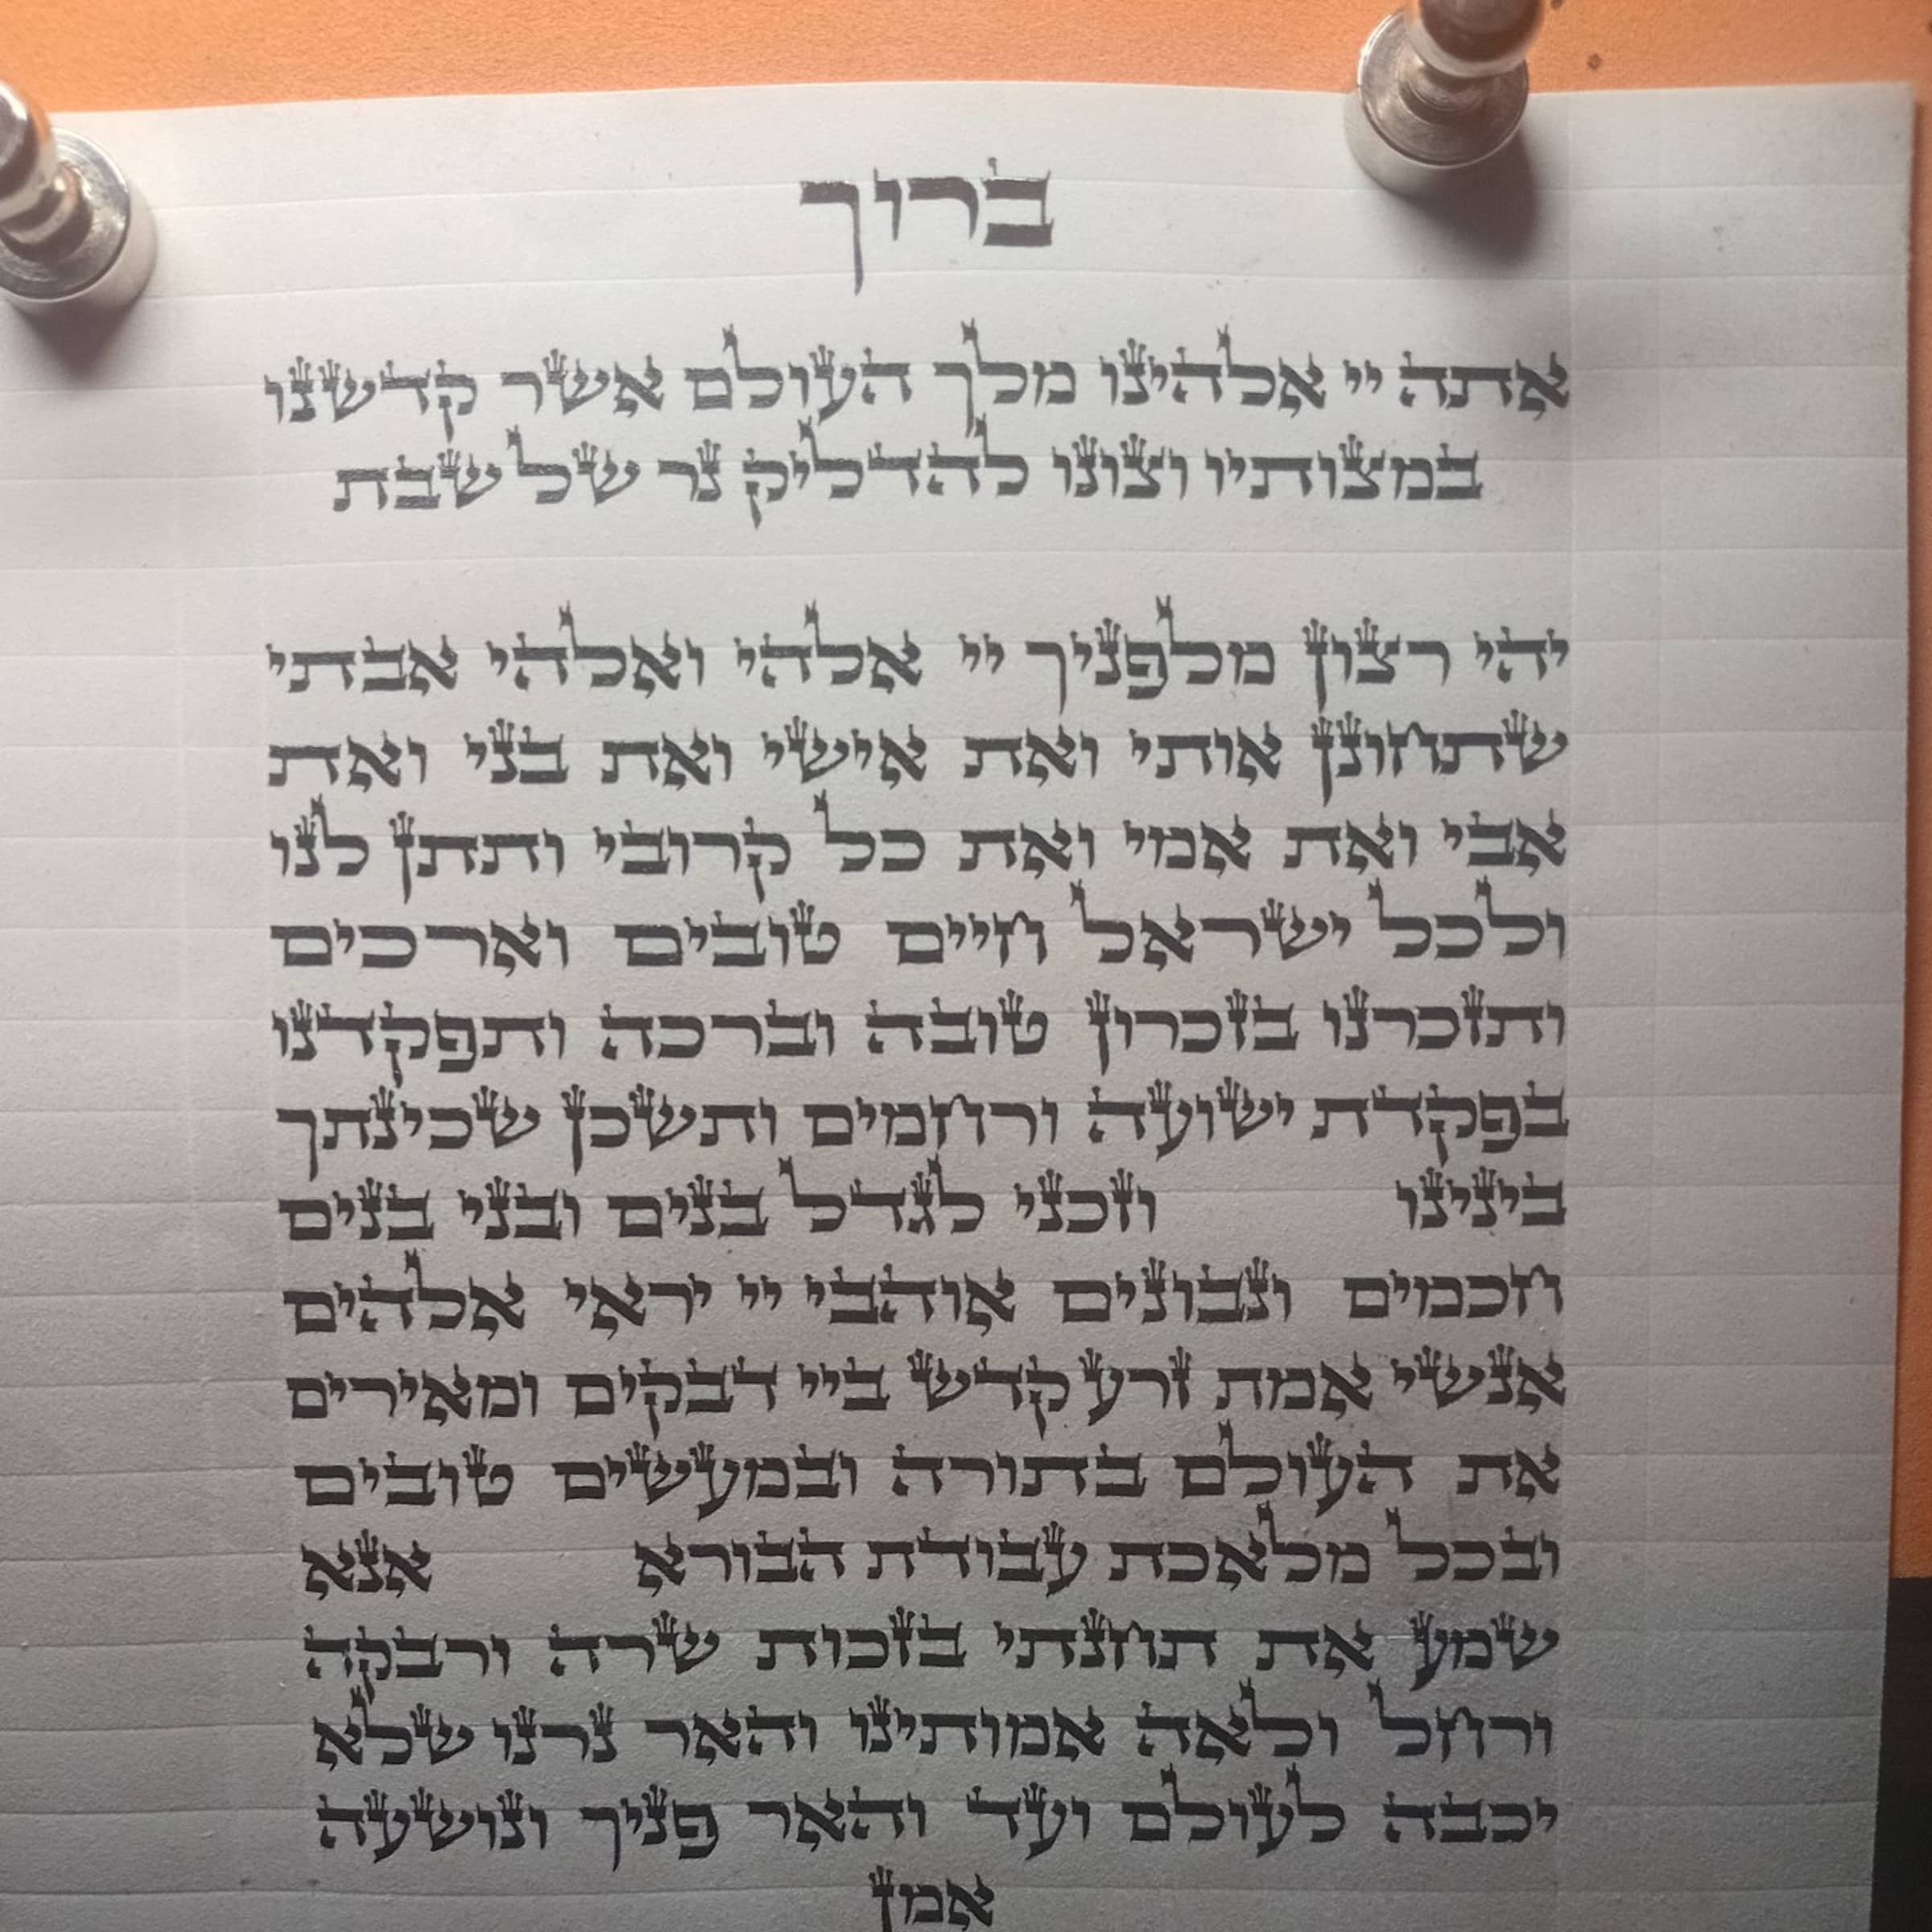 ברוך
אתה יי אלהינו מלך העולם אשר קדשנו
במצותיו וצונו להדליק נר של שבת
יהי רצון מלפניך יי אלהי ואלהי אבתי
שתחונן אותי ואת אישי ואת בני ואת
אבי ואת אמי ואת כל קרובי ותתן לנו
ולכל ישראל חיים טובים וארכים
ותזכרנו בזכרון טובה וברכה ותפקדנו
בפקדת ישועה ורחמים ותשכן שכינתך
בינינו וזכני לגדל בנים ובני בנים
חכמים ונבונים אוהבי יי יראי אלהים
אנשי אמת זרע קדש ביי דבקים ומאירים
את העולם בתורה ובמעשים טובים
ובכל מלאכת עבודת הבורא אנא
שמע את תחנתי בזכות שרה ורבקה
ורחל ולאה אמותינו והאר נרנו שלא
יכבה לעולם ועד והאר פניך ונושעה
אמן